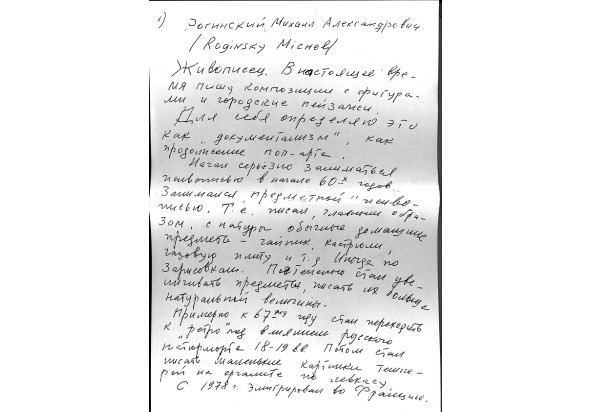 1) Рогинский Михаил Александрович
/ Roginsky Michel /
Живописец. В настоящее вре-
мя пишу композиции с фигура-
ми и городские пейзажи.
Для себя определяю это
как "документализм", как
продолжение поп-арта.
Начал серьёзно заниматься
живописью в начале 60х годов.
Занимался "предметной" живо-
писью. Т.е. писал, главным обра-
зом, с натуры обычные домашние
предметы - чайник, кастрюли,
газовую плиту и т.д. Иногда по
зарисовкам. Постепенно стал уве-
личивать предметы, писать их больше
натуральной величины.
Примерно к 67му году стал переходить
к "ретро" под влиянием русского
натюрморта 18-19 вв. Потом стал
писать маленькие картинки темпе-
рой на оргалите по левкасу.
С 1978 г. эмигрировал во Францию.